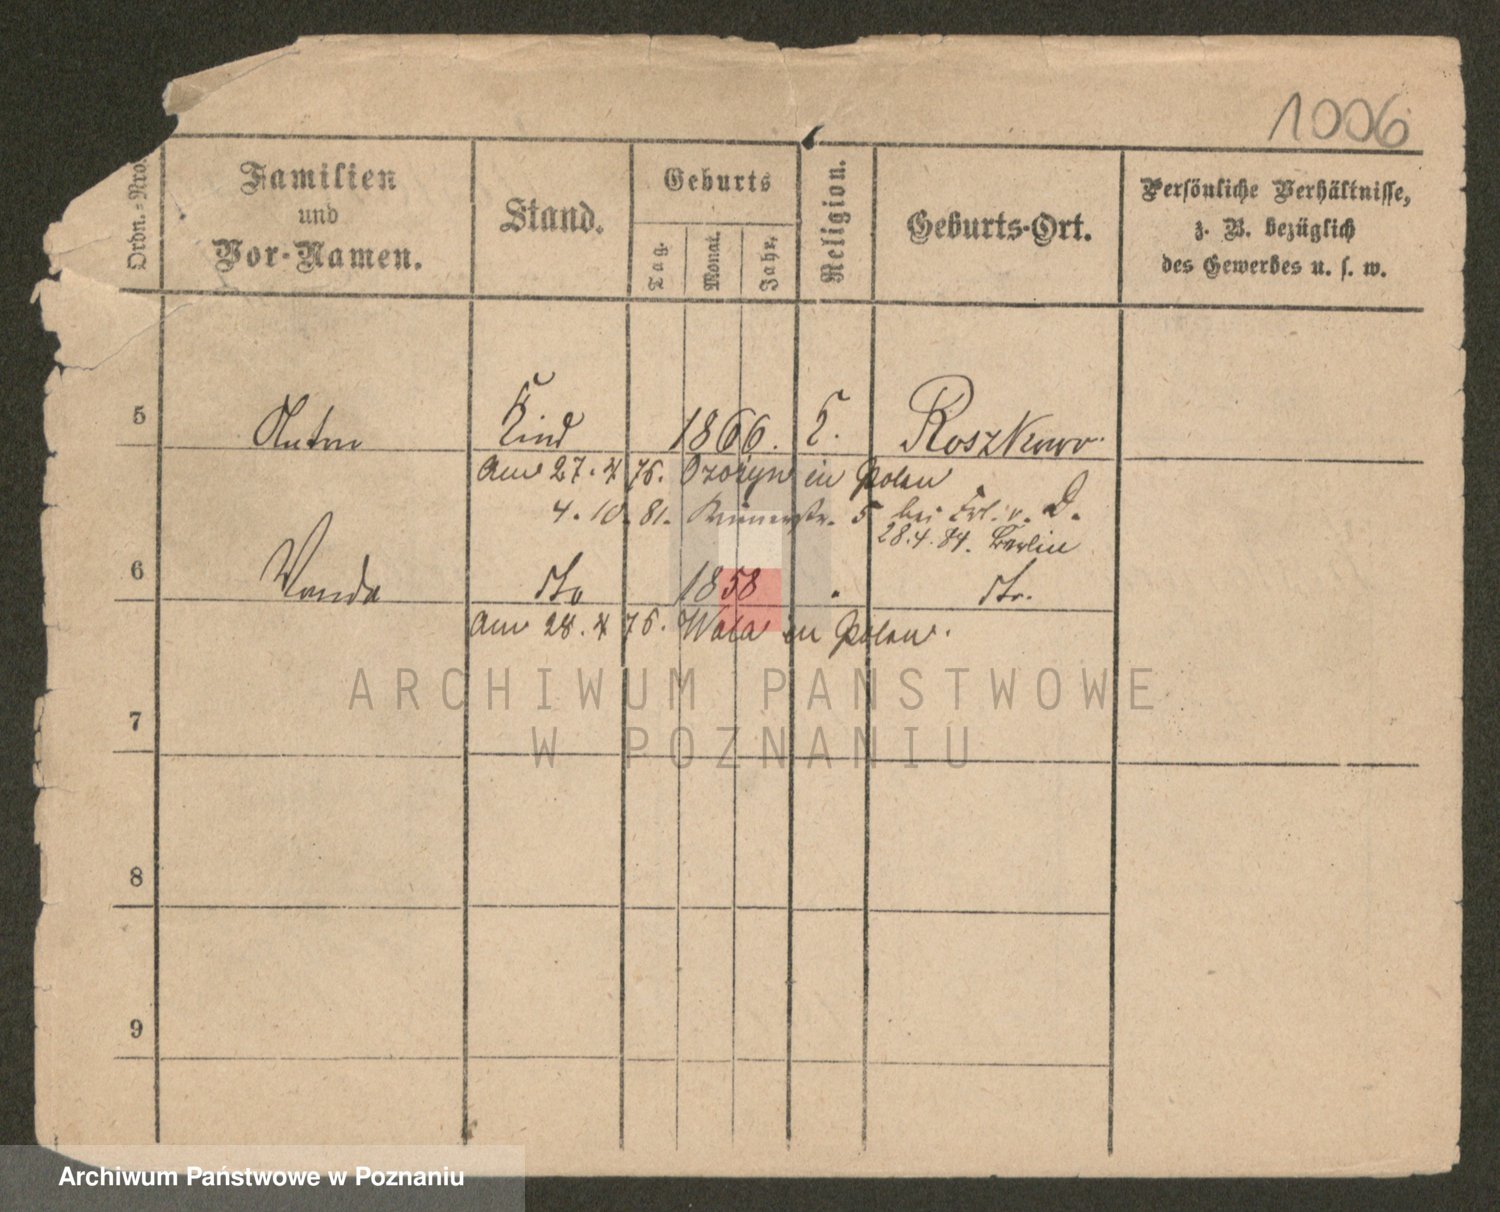 1006
Ordn.-Nro.
Familien
und
Vor-Namen.
Stand.
Geburts
Tag.
Monat.
Jahr.
Religion.
Geburts-Ort.
Persönliche Verhältnisse,
z. B. bezüglich
des Gewerbes u. s. w.
5 Anton Kind 1866. Roszkowo
Am 27. 4 76. in Polen
4. 10. 81. 5 bei Frl. v. D.
28.4.84. Berlin
6 Wanda dto 1858 dto.
Am 28. 4 76. Wola in Polen.
ARCHIWUM PAŃSTWOWE
W POZNANIU
7
8
9
Archiwum Państwowe w Poznaniu